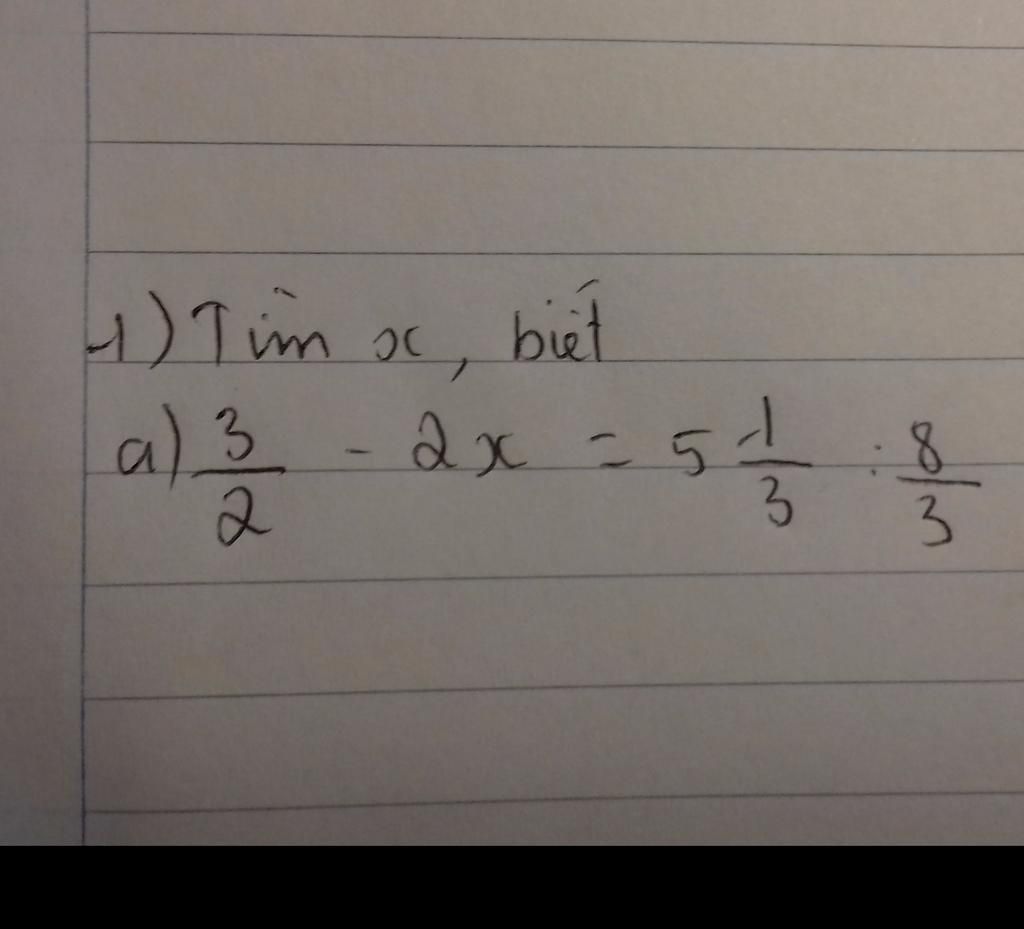 1) Tìm x, biết
a) 3/2 - 2x = 5 1/3 : 8/3